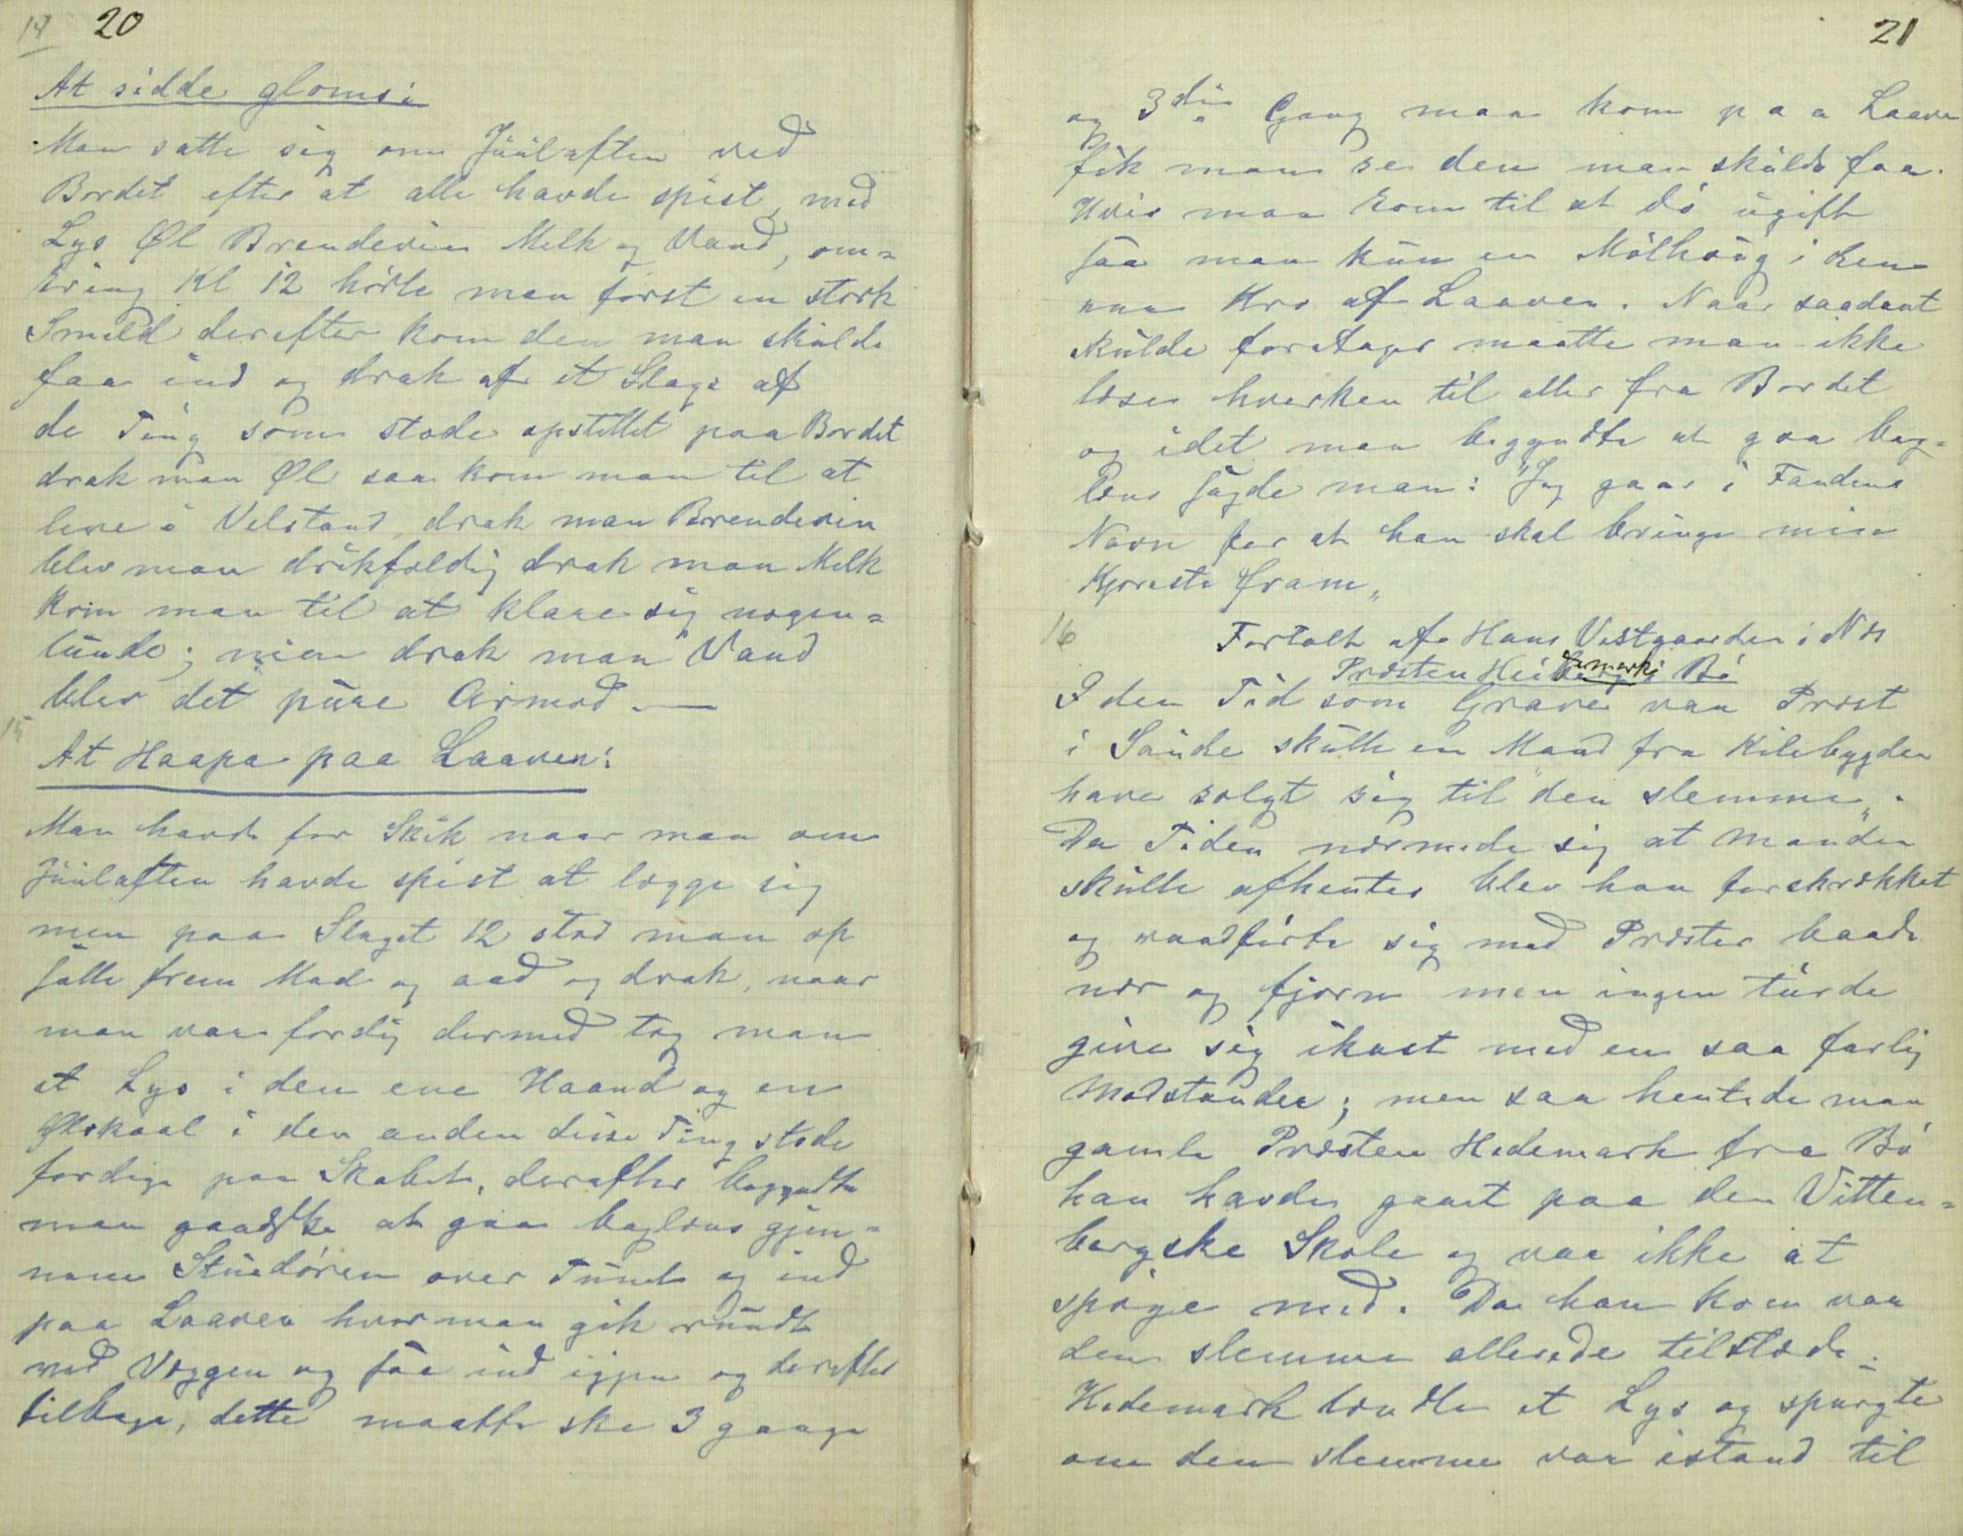 14 20
At sidde glomsi
Man satte sig om Juulaften ved
Bordet efter at alle havde spist, med
Lys Øl Brendevin Melk og Vand, om=
kring Kl 12 hørte man først en sterk
Smeld derefter kom den man skulde
faa ind og drak af et Slags af
de Ting som stode opstillet paa Bordet
drak man Øl saa kom man til at
leve i Velstand, drak man Brendevin
blev man drikfeldig drak man Melk
kom man til at klare sig nogen=
lunde; men drak man Vand
blev det pure Armod. —
15
At Haapa paa Laaven:
Man havde for Skik naar man om
Juulaften havde spist at lægge sig
men paa Slaget 12 stod man op
satte frem Mad og aad og drak, naar
man var færdig dermed tog man
et Lys i den ene Haand og en
Ølskaal i den anden disse Ting stode
færdige paa Skabet, derefter begyndte
man at gaa baglæns gjen=
nem Stuedøren over Tunet og ind
paa Laaven hvor man gik rundt
ved Væggen og saa ind igjen og derefter
tilbage, dette maatte ske 3 gange
21
og 3die Gang man kom paa Laaven
fik man se den man skulde faa.
Hvis man kom til at dø ugift
saa man kun en Mølhaug i den
ene Kro af Laaven. Naar saadant
skulde foretages maatte man ikke
læse hverken til eller fra Bordet
og idet man begyndte at gaa bag=
læns sagde man: "Jeg gaar i Fandens
Navn for at han skal bringe min
Kjæreste fram„
16 Fortalt af Hans Vestgaarden i Næs
Præsten Hei i Bø
I den Tid som Grave var Præst
i Saude skulle en Mand fra Kilebygden
have solgt sig til "den slemme„.
Da Tiden nærmede sig at Manden
skulle afhentes blev han forskrækket
og raadførte sig med Præster baade
nær og fjern men ingen turde
give sig ikast med en saa farlig
Modstander; men saa hentede man
gamle Præsten Hedemark fra Bø
han havde gaaet paa den Vitten=
bergske Skole og var ikke at
spøge med. Da han kom var
den slemme allerede tilstede.
Hedemark tændte et Lys og spurgte
om den slemme var istand til